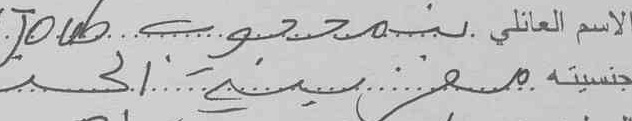 الاسم العائلي بنمحجوب Joub
جنسيته مغربية الحـ